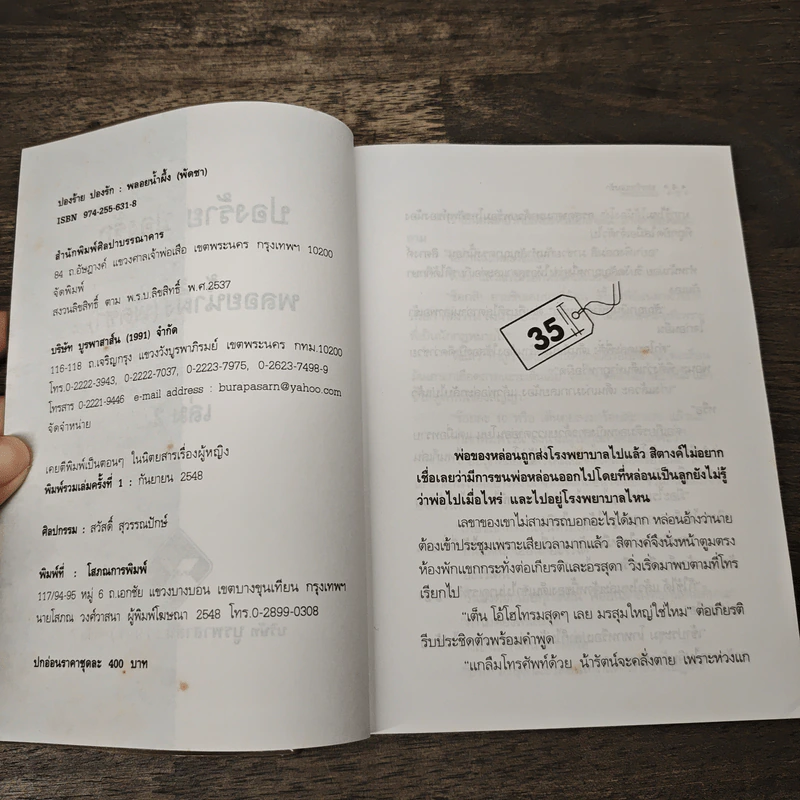 ปองร้าย ปองรัก : พลอยน้ำผึ้ง (พัดชา)
ISBN 974-255-631-8
สำนักพิมพ์ศิลปาบรรณาคาร
84 ถ.อัษฎางค์ แขวงศาลเจ้าพ่อเสือ เขตพระนคร กรุงเทพฯ 10200
จัดพิมพ์
สงวนลิขสิทธิ์ ตาม พ.ร.บ.ลิขสิทธิ์ พ.ศ.2537
บริษัท บูรพาสาส์น (1991) จำกัด
116-118 ถ.เจริญกรุง แขวงวังบูรพาภิรมย์ เขตพระนคร กทม.10200
โทร.0-2222-3943, 0-2222-7037, 0-2223-7975, 0-2623-7498-9
โทรสาร 0-2221-9446 e-mail address : burapasarn@yahoo.com
จัดจำหน่าย
เคยตีพิมพ์เป็นตอนๆ ในนิตยสารเรื่องผู้หญิง
พิมพ์รวมเล่มครั้งที่ 1 : กันยายน 2548
ศิลปกรรม : สวัสดิ์ สุวรรณปักษ์
พิมพ์ที่ : โสภณการพิมพ์
117/94-95 หมู่ 6 ถ.เอกชัย แขวงบางบอน เขตบางขุนเทียน กรุงเทพฯ
นายโสภณ วงศ์วาสนา ผู้พิมพ์โฆษณา 2548 โทร.0-2899-0308
ปกอ่อนราคาชุดละ 400 บาท
35
พ่อของหล่อนถูกส่งโรงพยาบาลไปแล้ว สิตางค์ไม่อยาก
เชื่อเลยว่ามีการขนพ่อหล่อนออกไปโดยที่หล่อนเป็นลูกยังไม่รู้
ว่าพ่อไปเมื่อไหร่ และไปอยู่โรงพยาบาลไหน
เลขาของเขาไม่สามารถบอกอะไรได้มาก หล่อนอ้างว่านาย
ต้องเข้าประชุมเพราะเสียเวลามากแล้ว สิตางค์จึงนั่งหน้าตูมตรง
ห้องพักแขกกระทั่งต่อเกียรติและอรสุดา วิ่งเริ่ดมาพบตามที่โทร
เรียกไป
"เต็น โอ้โฮโทรมสุดๆ เลย มรสุมใหญ่ใช่ไหม" ต่อเกียรติ
รีบประชิดตัวพร้อมคำพูด
"แกลืมโทรศัพท์ด้วย น้ารัตน์จะคลั่งตาย เพราะห่วงแก